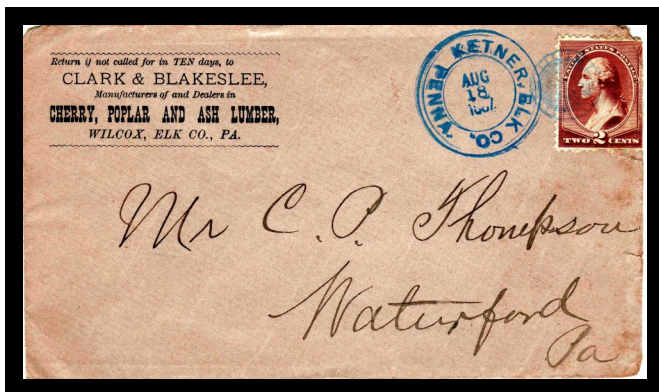 Return if not called for in TEN days, to
CLARK & BLAKESLEE,
Manufacturers of and Dealers in
CHERRY, POPLAR AND ASH LUMBER,
WILCOX, ELK CO., PA.
KETNER, ELK CO. PENNA.
AUG
18
1887
UNITED STATES POSTAGE
TWO 2 CENTS
Mr C. P. Thompson
Waterford
Pa